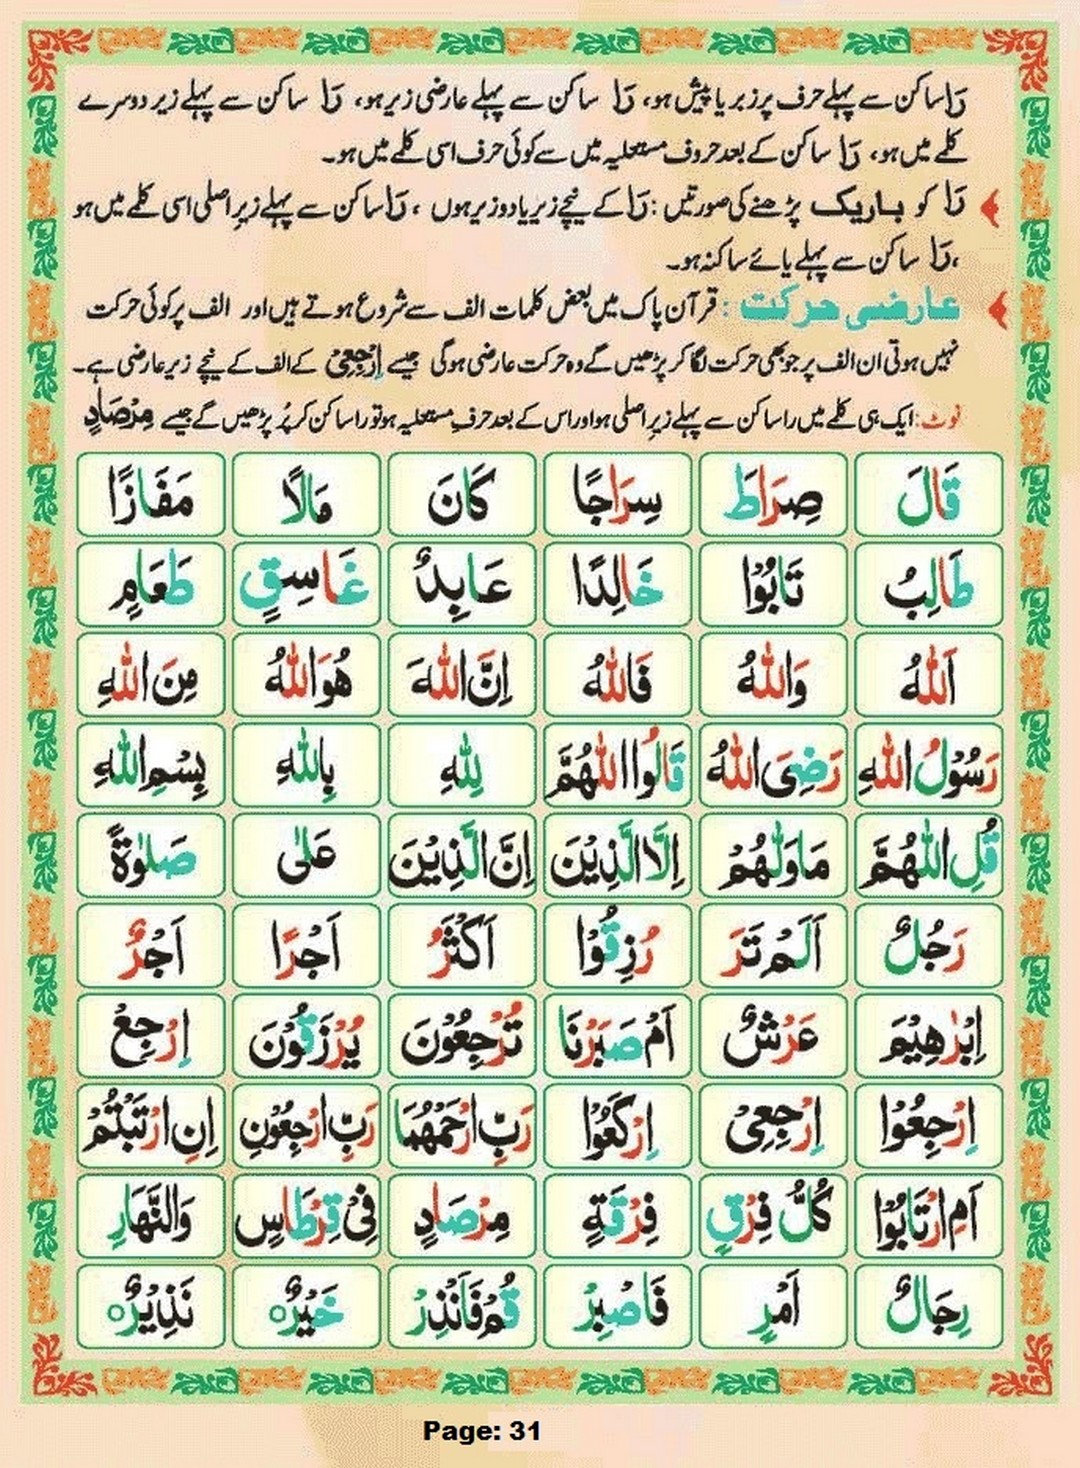 رَا ساکن سے پہلے حرف پر زبر یا پیش ہو، رَا ساکن سے پہلے عارضی زیر ہو، رَا ساکن سے پہلے زیر دوسرے
کلمے میں ہو، رَا ساکن کے بعد حروف مستعلیہ میں سے کوئی حرف اسی کلمے میں ہو۔
رَا کو باریک پڑھنے کی صورتیں : رَا کے نیچے زیر یا دو زیر ہوں ، رَا ساکن سے پہلے زیرِ اصلی اسی کلمے میں ہو
،رَا ساکن سے پہلے یائے ساکنہ ہو۔
عارضی حرکت : قرآن پاک میں بعض کلمات الف سے شروع ہوتے ہیں اور الف پر کوئی حرکت
نہیں ہوتی ان الف پر جو بھی حرکت لگا کر پڑھیں گے وہ حرکت عارضی ہوگی جیسے اِرْجِعِیْ کے الف کے نیچے زیر عارضی ہے۔
نوٹ: ایک ہی کلمے میں را ساکن سے پہلے زیرِ اصلی ہو اور اس کے بعد حرفِ مستعلیہ ہو تو را ساکن کر پُر پڑھیں گے جیسے مِرْصَادٍ
قَالَ صِرَاطَ سِرَاجًا كَانَ مَالًا مَفَازًا
طَالِبُ تَابُوْا خَالِدًا عَابِدٌ غَاسِقٍ طَعَامٍ
اَللّٰهُ وَاللّٰهُ فَاللّٰهُ اِنَّ اللّٰهَ هُوَ اللّٰهُ مِنَ اللّٰهِ
رَسُوْلُ اللّٰهِ رَضِىَ اللّٰهُ قَالُوا اللّٰهُمَّ لِلّٰهِ بِاللّٰهِ بِسْمِ اللّٰهِ
قُلِ اللّٰهُمَّ مَاوَلّٰهُمْ اِلَّا الَّذِيْنَ اِنَّ الَّذِيْنَ عَلٰى صَلٰوةً
رَجُلٌ اَلَمْ تَرَ رُزِقُوْا اَكْثَرُ اَجْرًا اَجْرٌ
اِبْرٰهِيْمَ عَرْشٌ اَمْ صَبَرْنَا تُرْجِعُوْنَ يُرْزَقُوْنَ اِرْجِعْ
اِرْجِعُوْا اِرْجِعِىْ اِرْكَعُوْا رَبِّ ارْحَمْهُمَا رَبِّ ارْجِعُوْنِ اِنِ ارْتَبْتُمْ
اَمِ ارْتَابُوْا كُلُّ فِرْقٍ فِرْقَةٍ مِرْصَادٍ فِىْ قِرْطَاسٍ وَالنَّهَارِ
رِجَالٌ اَمْرٍ فَاصْبِرْ قُمْ فَاَنْذِرْ خَيْرٌ ○ نَذِيْرٌ ○
Page: 31